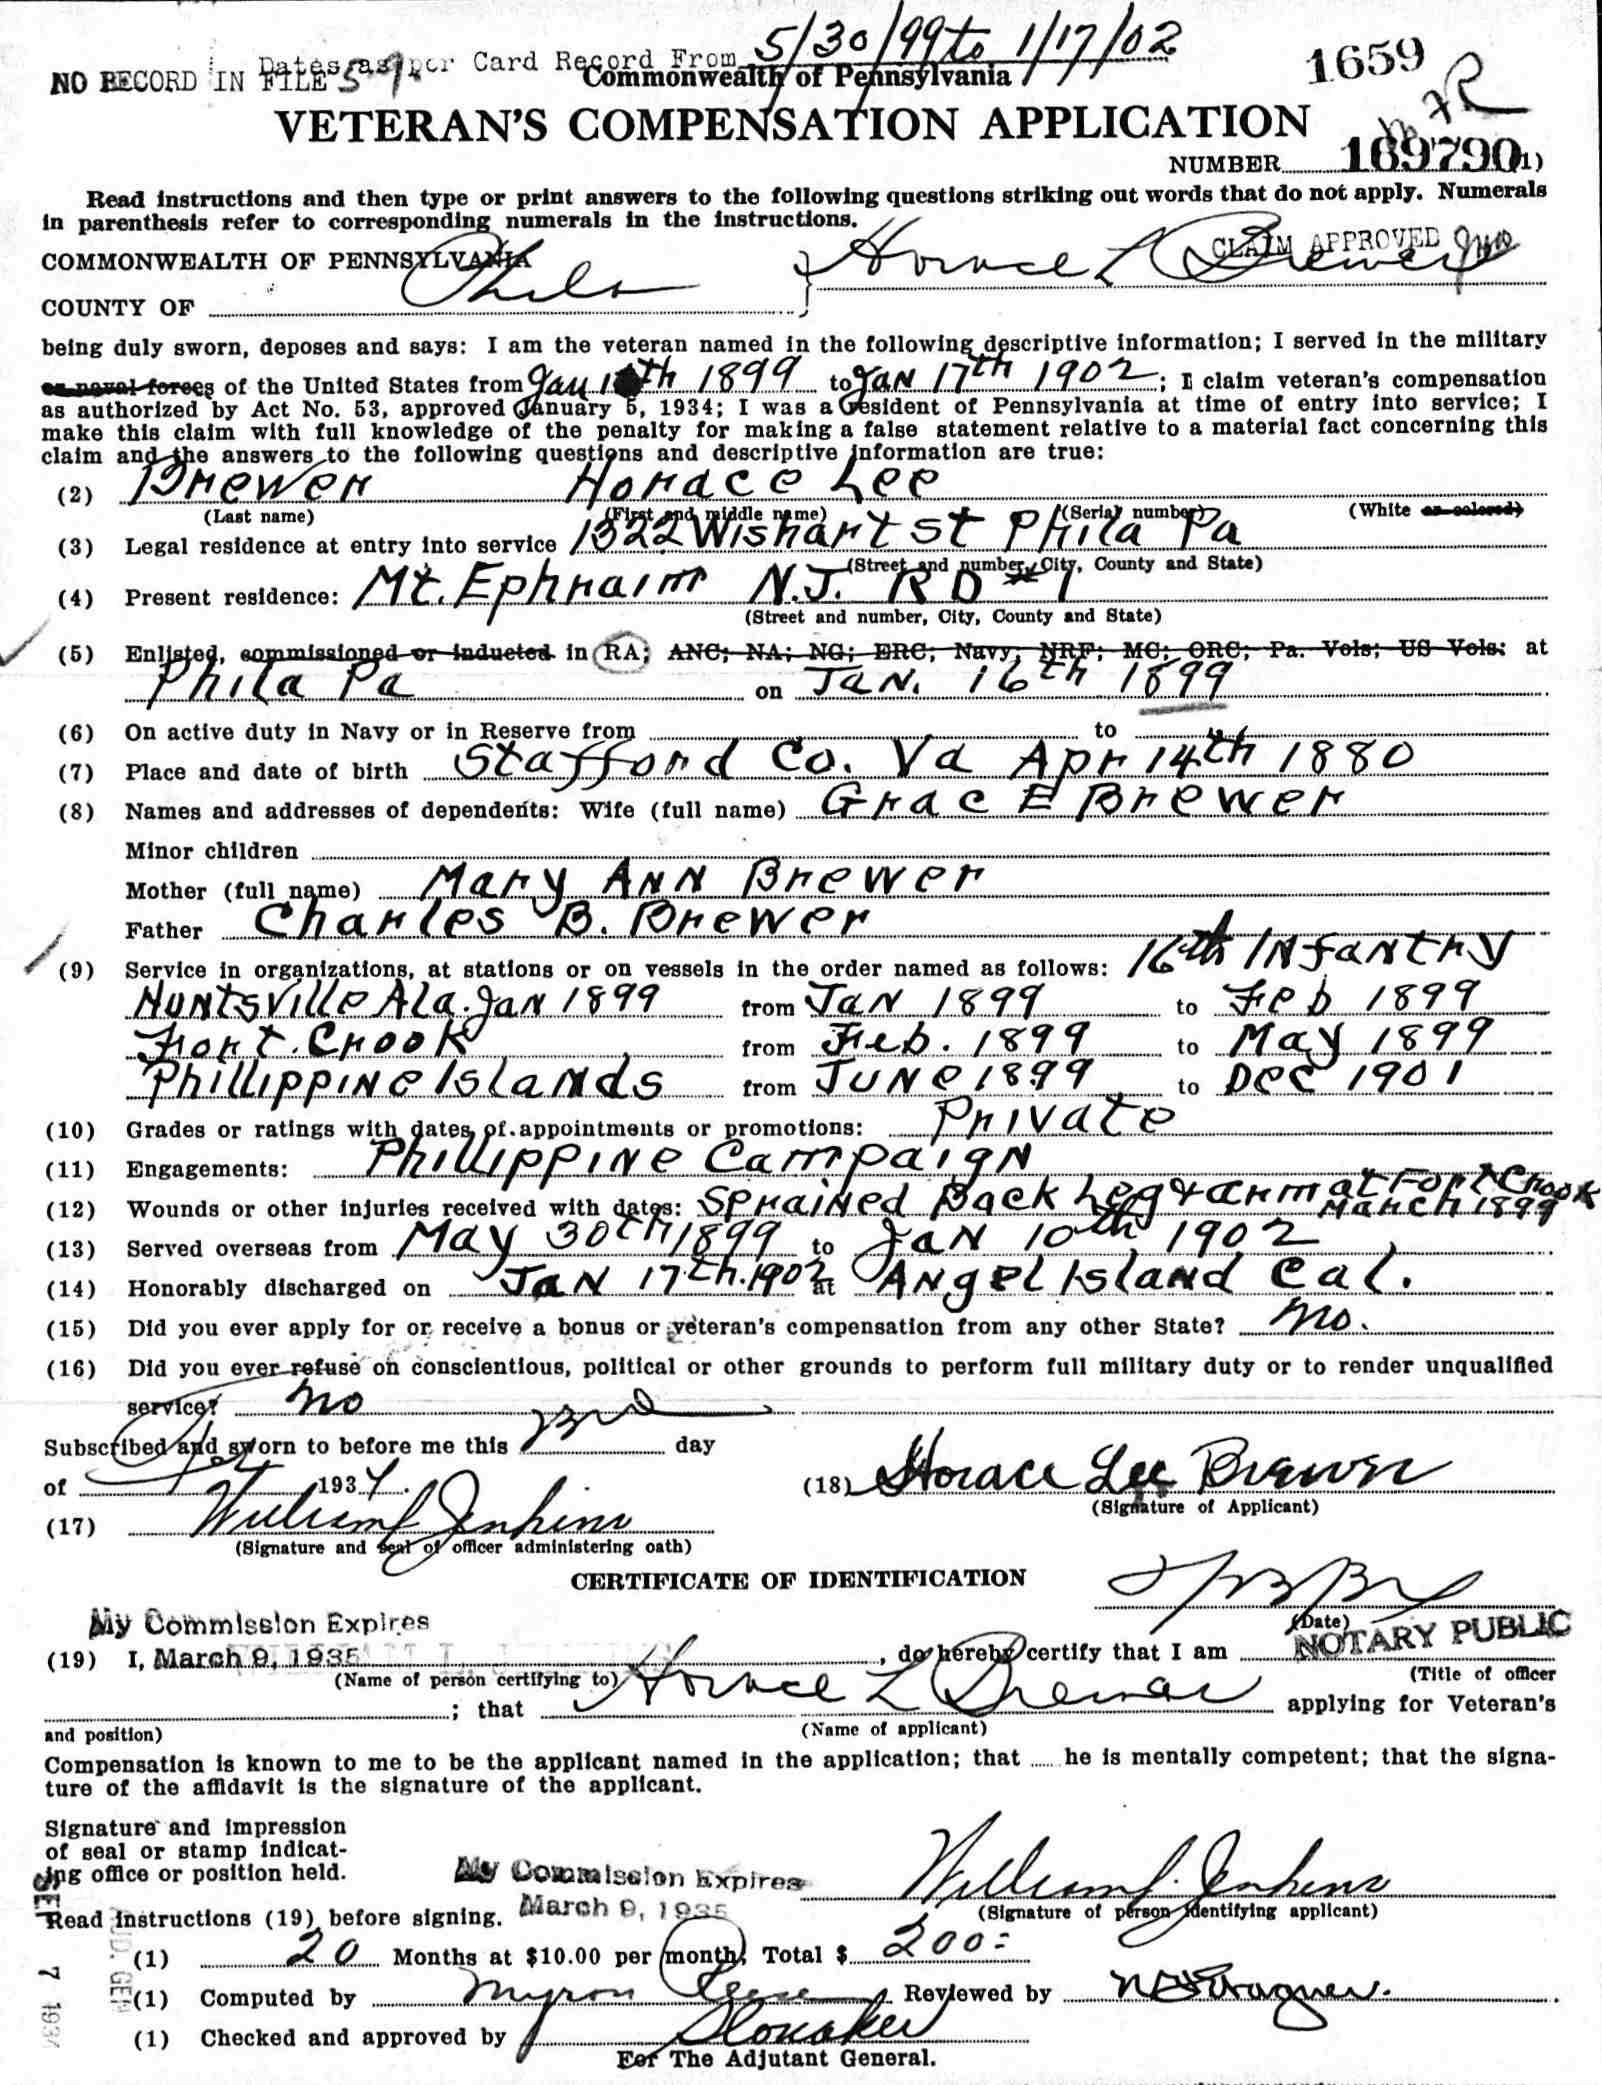 Dates as per Card Record From 5/30/99 to 1/17/02
NO RECORD IN FILE
Commonwealth of Pennsylvania
1659
VETERAN'S COMPENSATION APPLICATION
NUMBER 189790 (1)
Read instructions and then type or print answers to the following questions striking out words that do not apply. Numerals
in parenthesis refer to corresponding numerals in the instructions.
CLAIM APPROVED
COMMONWEALTH OF PENNSYLVANIA
COUNTY OF Phila } Horace L Brewer
being duly sworn, deposes and says: I am the veteran named in the following descriptive information; I served in the military
or naval forces of the United States from Jan 16th 1899 to Jan 17th 1902; I claim veteran's compensation
as authorized by Act No. 53, approved January 5, 1934; I was a resident of Pennsylvania at time of entry into service; I
make this claim with full knowledge of the penalty for making a false statement relative to a material fact concerning this
claim and the answers to the following questions and descriptive information are true:
(2) Brewer Horace Lee
(Last name) (First and middle name) (Serial number) (White or colored)
(3) Legal residence at entry into service 1322 Wishart St Phila Pa
(Street and number, City, County and State)
(4) Present residence: Mt. Ephraim N.J. RD #1
(Street and number, City, County and State)
(5) Enlisted, commissioned or inducted in RA; ANC; NA; NG; ERC; Navy; NRF; MC; ORC; Pa. Vols; US Vols: at
Phila Pa on Jan. 16th 1899
(6) On active duty in Navy or in Reserve from to
(7) Place and date of birth Stafford Co. Va Apr 14th 1880
(8) Names and addresses of dependents: Wife (full name) Grac E Brewer
Minor children
Mother (full name) Mary Ann Brewer
Father Charles B. Brewer
(9) Service in organizations, at stations or on vessels in the order named as follows: 16th Infantry
Huntsville Ala. Jan 1899 from Jan 1899 to Feb 1899
Fort. Crook from Feb. 1899 to May 1899
Phillippine Islands from June 1899 to Dec 1901
(10) Grades or ratings with dates of appointments or promotions: Private
(11) Engagements: Phillippine Campaign
(12) Wounds or other injuries received with dates: Sprained Back Leg & arm at Fort Crook
March 1899
(13) Served overseas from May 30th 1899 to Jan 10th 1902
(14) Honorably discharged on Jan 17th. 1902 at Angel Island Cal.
(15) Did you ever apply for or receive a bonus or veteran's compensation from any other State? No.
(16) Did you ever refuse on conscientious, political or other grounds to perform full military duty or to render unqualified
service? no
Subscribed and sworn to before me this 3rd day
of 1934.
(18) Horace Lee Brewer
(Signature of Applicant)
(17) William J Jenkins
(Signature and seal of officer administering oath)
CERTIFICATE OF IDENTIFICATION
(Date)
My Commission Expires
NOTARY PUBLIC
(19) I, March 9, 1935, do hereby certify that I am
(Name of person certifying to) (Title of officer
; that Horace L Brewer applying for Veteran's
and position) (Name of applicant)
Compensation is known to me to be the applicant named in the application; that he is mentally competent; that the signa-
ture of the affidavit is the signature of the applicant.
Signature and impression
of seal or stamp indicat-
ing office or position held.
My Commission Expires
March 9, 1935
William J. Jenkins
(Signature of person identifying applicant)
Read instructions (19) before signing.
(1) 20 Months at $10.00 per month, Total $ 200=
(1) Computed by Myron Reese Reviewed by
(1) Checked and approved by Slonaker
For The Adjutant General.
7 1934